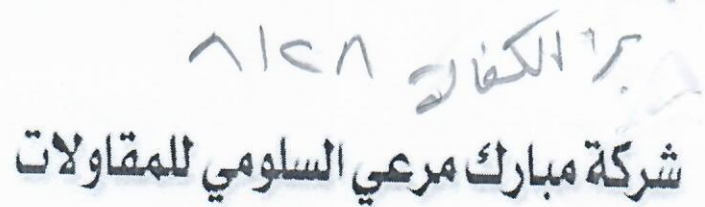 برا الكفالة ٨١٢٨
شركة مبارك مرعي السلومي للمقاولات